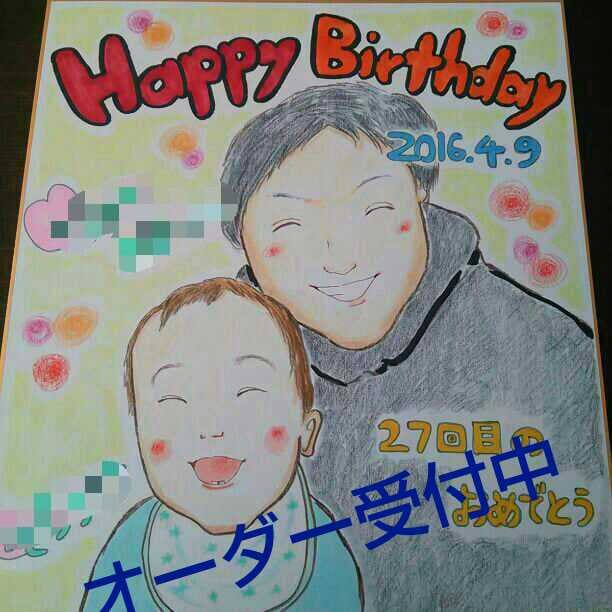 Happy Birthday
2016.4.9
27回目の
おめでとう
オーダー受付中